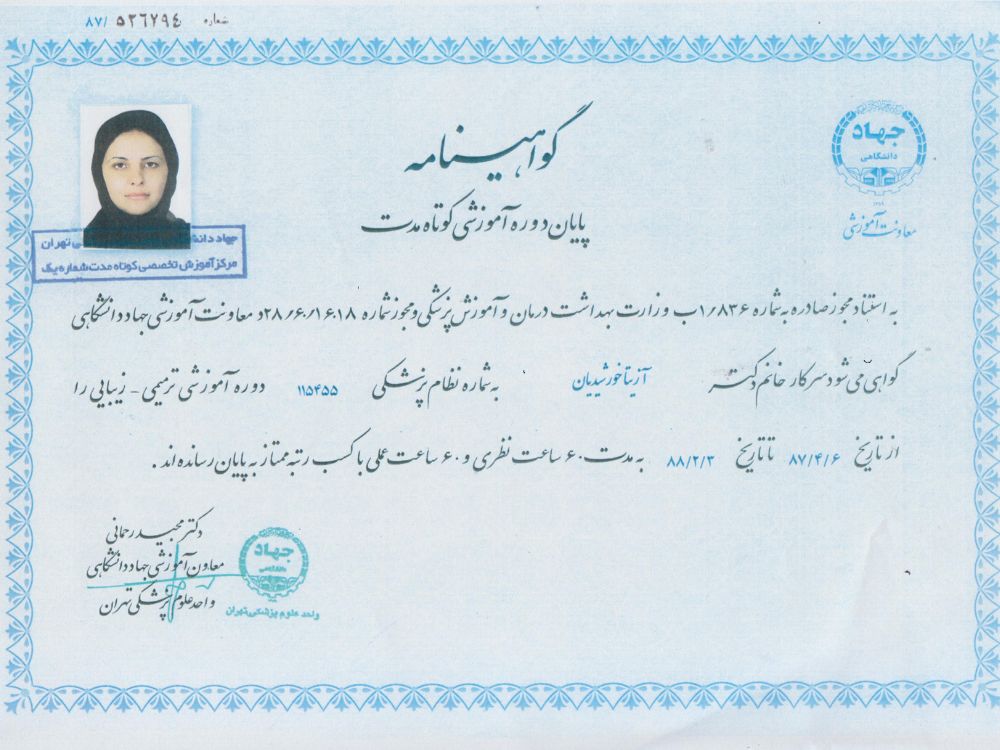 شماره ۵۲۶۷۹۴ /۸۷
جهاد
دانشگاهی
معاونت آموزشی
گواهینامه
پایان دوره آموزشی کوتاه مدت
جهاد دانشگاهی تهران
مرکز آموزش تخصصی کوتاه مدت شماره یک
به استناد مجوز صادره به شماره ۱/۸۳۶ب وزارت بهداشت درمان و آموزش پزشکی و مجوز شماره ۲۸/۶/۱۶۰۱۸د معاونت آموزشی جهاد دانشگاهی
گواهی می شود سرکار خانم دکتر آزیتا خورشیدیان به شماره نظام پزشکی ۱۱۵۴۵۵ دوره آموزشی ترمیمی - زیبایی را
از تاریخ ۸۷/۴/۶ تا تاریخ ۸۸/۲/۳ به مدت ۶۰ ساعت نظری و ۶۰ ساعت عملی با کسب رتبه ممتاز به پایان رسانده اند .
دکتر مجید رحمانی
معاون آموزشی جهاد دانشگاهی
واحد علوم پزشکی تهران
جهاد
دانشگاهی
واحد علوم پزشکی تهران